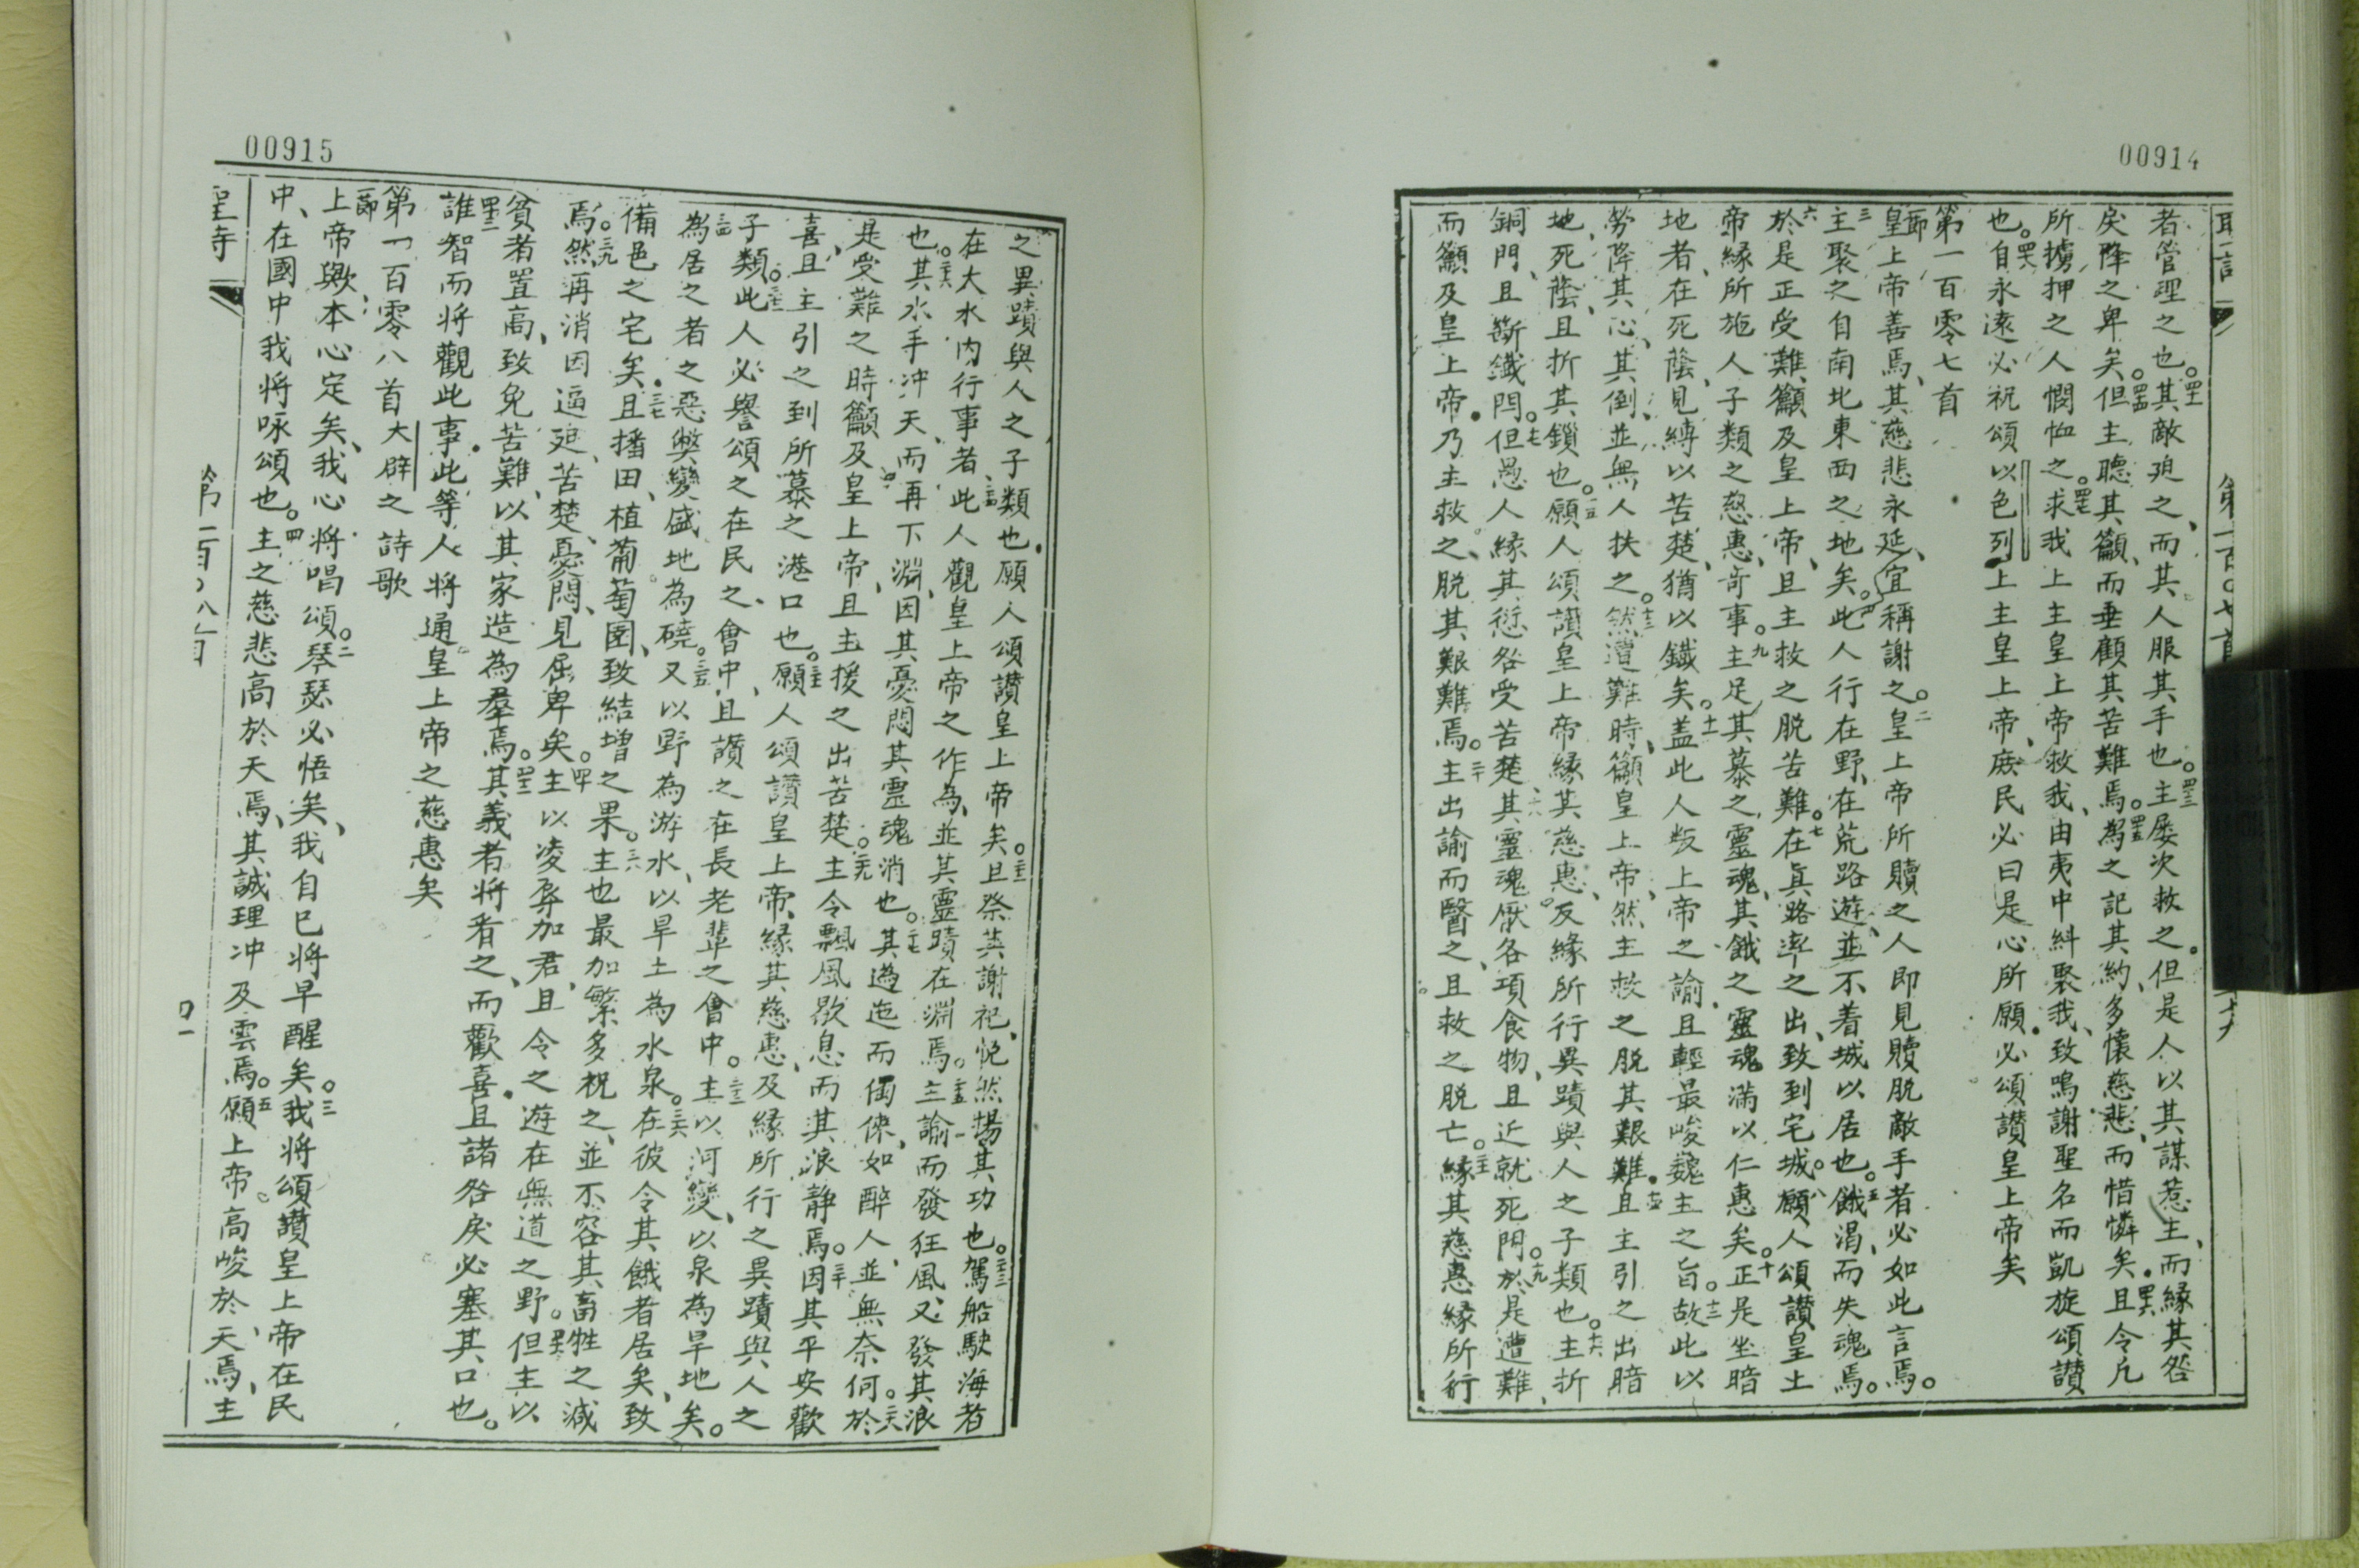 00914
者管理之也。四二其敵廹之、而其人服其手也。四三主屡次救之。但是人以其謀惹主、而緣其咎
戾降之卑矣。四四但主聽其籲、而垂顧其苦難焉。四五為之記其約、多懷慈悲、而惜憐矣。四六且令凡
所擄押之人憫恤之。四七求我上主皇上帝救我、由夷中糾聚我、致鳴謝聖名而凱旋頌讃
也。四八自永遠必祝頌以色列上主皇上帝、庶民必曰是心所願。必頌讃皇上帝矣
第一百零七首
節皇上帝善焉、其慈悲永延、宜稱謝之。二皇上帝所贖之人即見贖脫敵手者必如此言焉。
三主聚之自南北東西之地矣。四此人行在野、在荒路遊、並不着城以居也。五餓渴、而失魂焉。
六於是正受難籲及皇上帝、且主救之脫苦難。七在眞路率之出、致到宅城。八願人頌讃皇上
帝緣所施人子類之慈惠、竒事。九主足其慕之靈魂、其餓之靈魂滿以仁惠矣。十正是坐暗
地者、在死蔭、見縛以苦楚、猶以鐵矣。十一盖此人叛上帝之諭、且輕最峻魏主之旨。十二故此以
勞降其心、其倒、並無人扶之。十三然遭難時、籲皇上帝、然主救之脫其艱難。十四且主引之出暗
地、死蔭、且折其鎖也。十五願人頌讃皇上帝緣其慈惠、及緣所行異蹟與人之子類也。十六主折
銅門、且斷鐵閂。十七但愚人緣其愆咎受苦楚、十八其靈魂厭各項食物、且近就死門。十九於是遭難、
而籲及皇上帝。乃主救之、脫其艱難焉。二十主出諭而醫之、且救之脫亡。二一緣其慈惠緣所行
00915
之異蹟與人之子類也。願人頌讃皇上帝矣。二二且祭其謝祀、悅然揚其功也。二三駕船駛海者
在大水内行事者、二四此人觀皇上帝之作為、並其靈蹟在淵焉。二五主諭而發狂風、又發其浪
也。二六其水手冲天、而再下淵、因其憂悶其靈魂消也。二七其邊迤而徊徠、如醉人、並無奈何、於
是受難之時籲及皇上帝、且主援之出苦楚。二九主令飄風歇息、而其浪静焉。三十因其平安歡
喜、且主引之到所慕之港口也。三一願人頌讃皇上帝、緣其慈惠、及緣所行之異蹟與人之
子類。三二此人必譽頌之在民之會中、且讃之在長老輩之會中。三三主以河變、以泉為旱地矣。
三四為居之者之惡獘變盛地為磽。三五又以野為游水、以旱土為水泉。三六在彼令其餓者居矣、致
備邑之宅矣。三七且播田、植葡萄園、致結增之果。三八主也最加繁多祝之、並不容其畜牲之減
焉。三九然再消因逼廹、苦楚、憂悶、見屈卑矣。四十主以凌辱加君、且令之遊在無道之野。四一但主以
貧者置高、致免苦難、以其家造為羣焉。四二其義者將看之、而歡喜。且諸咎戾必塞其口也。
四三誰智而將觀此事。此等人將通皇上帝之慈惠矣
第一百零八首 大辟之詩歌
節上帝歟、本心定矣、我心將唱頌。二琴瑟必悟矣、我自已將早醒矣。三我將頌讃皇上帝在民
中、在國中我將咏頌也。四主之慈悲高於天焉、其誠理冲及雲焉。五願上帝高峻於天焉、主
第一百〇八首